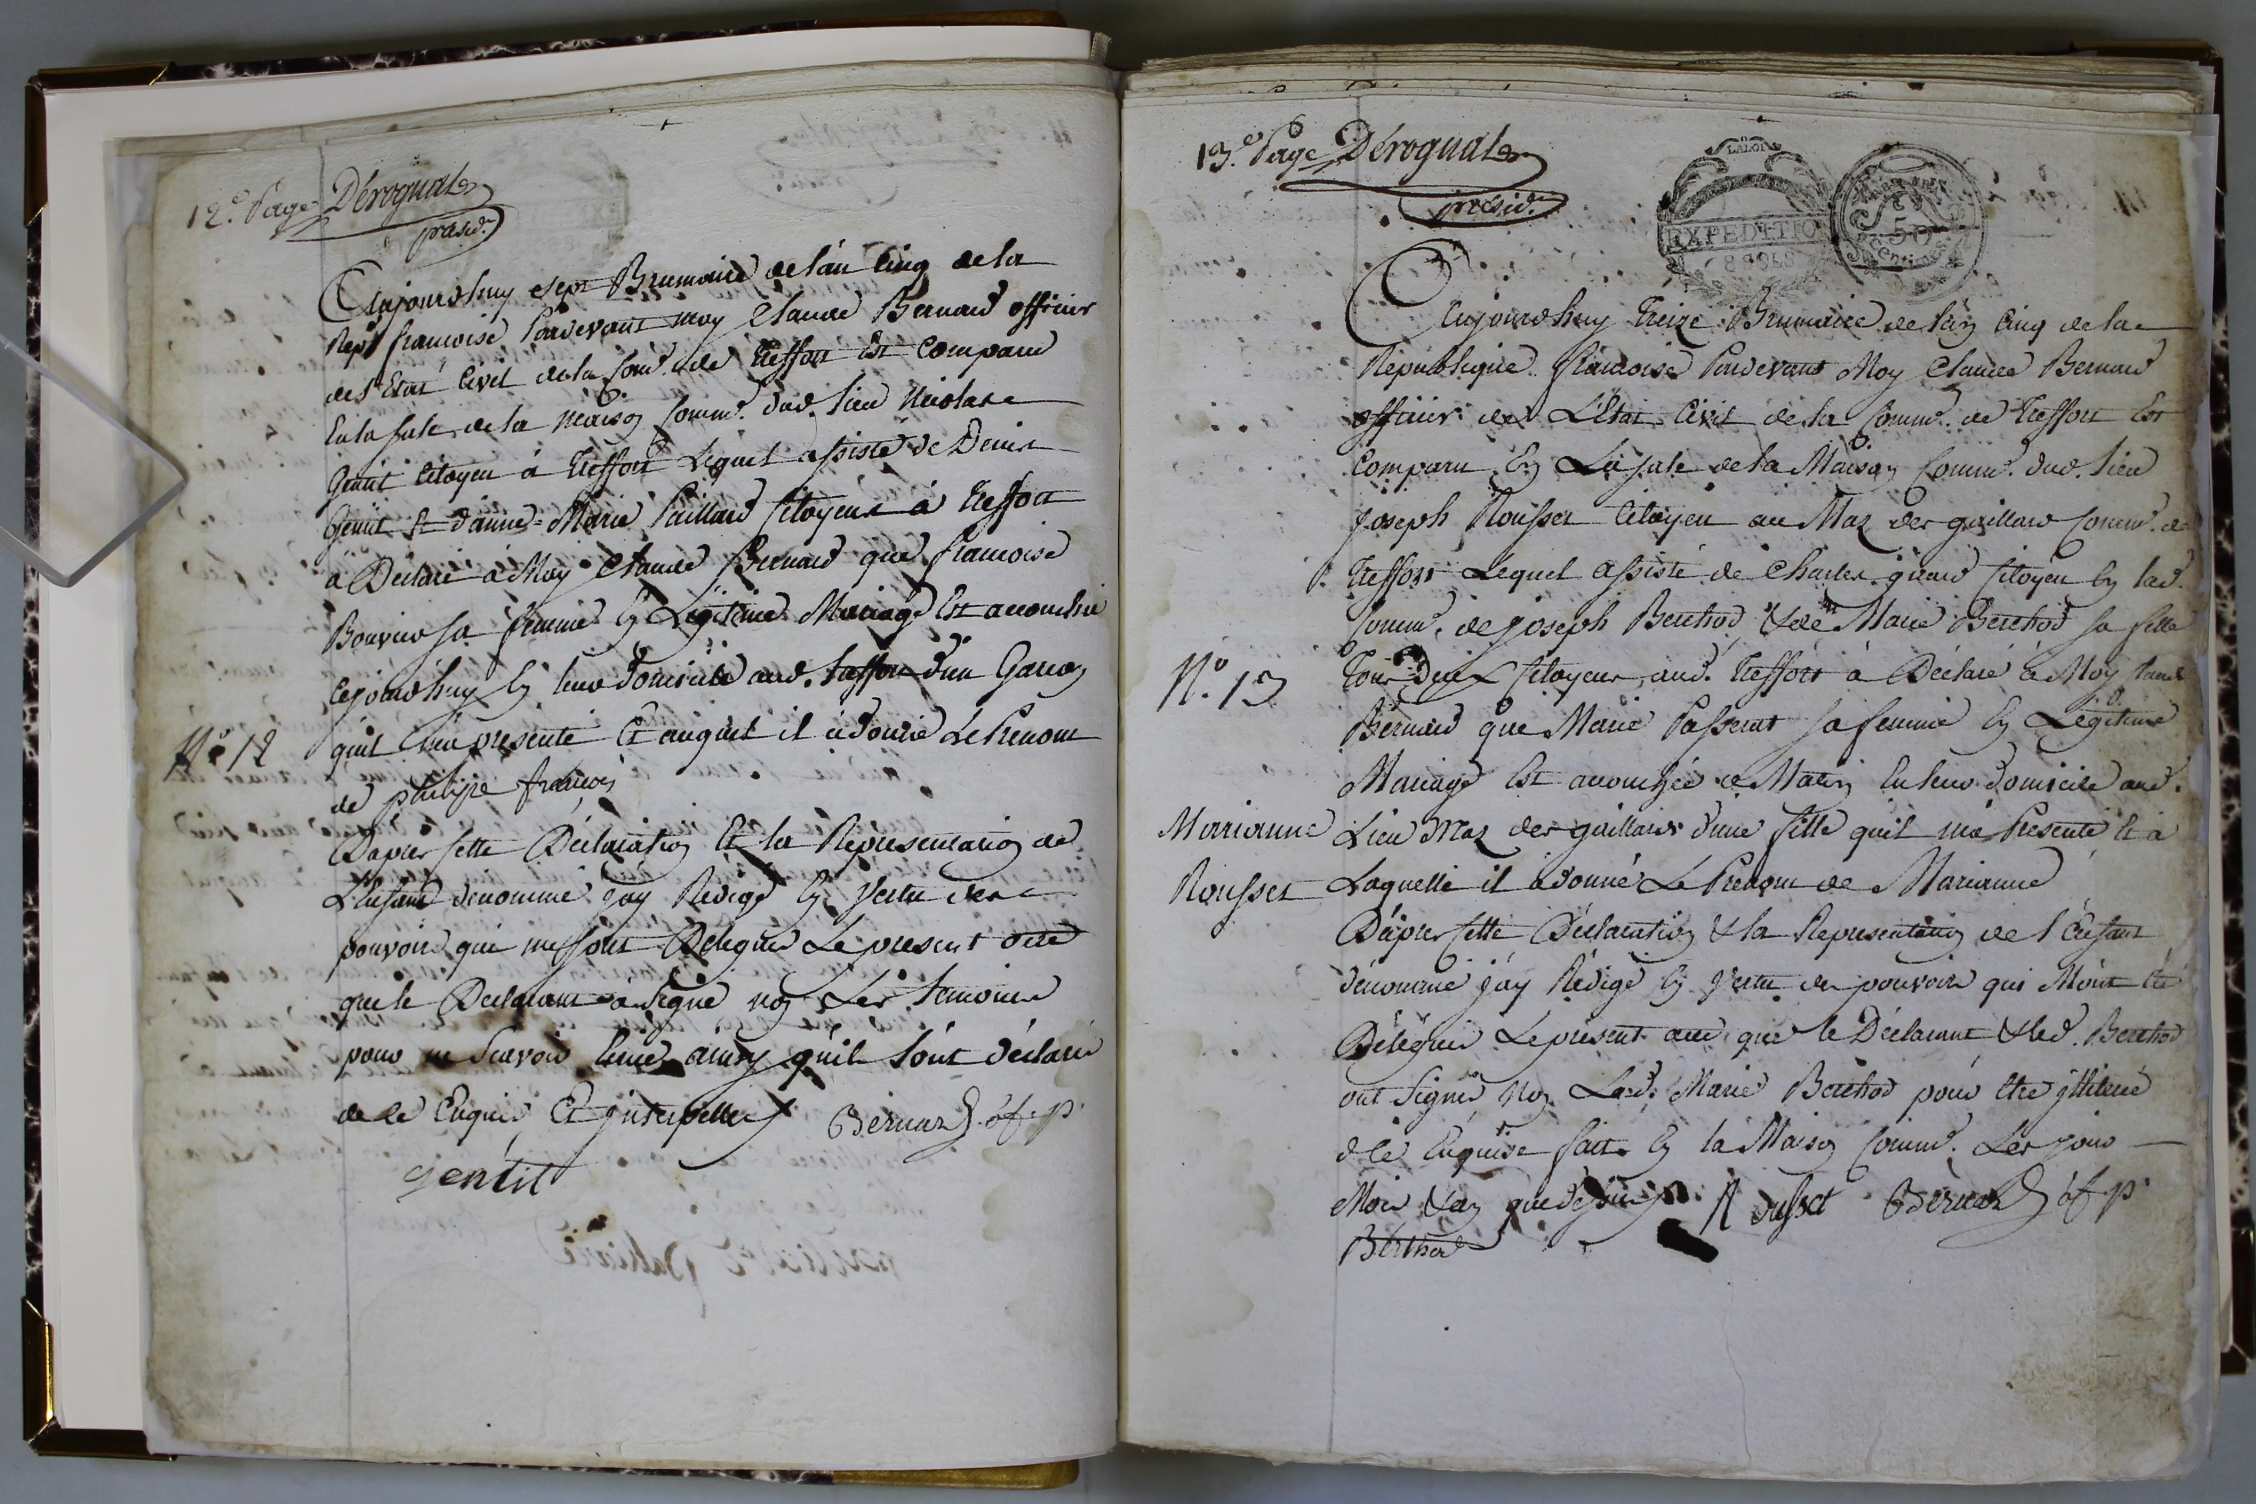 12.e Page Dérognat
présid.
Aujourdhuy sept Brumaire de lan Cinq de la
Repe francoise Pardevant moy Claude Bernard officier
de l'Etat Civil de la Comme. de Treffort Est Comparu
En la sale de la Maison Comme. dud. lieu Nicolas
Gentit Citoyen à Treffort Lequel assisté de Denis
Gentit & d'anne-Marie Paillard Citoyens à Treffort
à Déclaré à Moy Claude Bernard que francoise
Bouvier sa femme En Légitime Mariage Est accouchée
Cejourdhuy En leur domicile aud. Treffort d'un Garçon
N.º 12
quil m'a presenté Et auquel il a donné Le Prenom
de philipe françois
Dapres Cette Déclaration Et la Representation de
L'Enfant denommé j'ay Redigé En Vertu des
pouvoirs qui me sont Délégués Le present acte
que le Déclarant à Signé non Les temoins
pour ne Scavoir lecture ainsy quils sont déclaré
de ce Enquis Et Interpellés Bernard of. p.
gentit
13.e Page Dérognat
présid.
LA LOI
EXPEDITIO
8 SOLS
50
Centimes
Aujourdhuy Treize Brumaire de l'an Cinq de la
République francoise Pardevant Moy Claude Bernard
officier de L'Etat Civil de la Comme. de Treffort Est
Comparu En La sale de la Maison Comme. dud. lieu
Joseph Rousset Citoyen au Maz des gaillard Comme. de
Treffort Lequel assisté de Charles girard Citoyen En lad.
Comme. de Joseph Berthod & de Marie Berthod sa fille
N.º 13
Tous Deux Citoyens aud. Treffort à Déclaré à Moy Claude
Bernard que Marie Passerat sa femme En Légitime
Mariage Est accouchée ce Matin En leur domicile aud.
Marianne
Lieu Maz des gaillards d'une fille quil m'a Presenté & à
Rousset
Laquelle il à donné Le Prenom de Marianne
D'apres Cette Déclaration & la Representation de l'Enfant
dénommé j'ay Rédigé En Vertu des pouvoirs qui M'ont Eté
Délégués Le present acte que le Déclarant & led. Berthod
ont Signés Non Lad. Marie Berthod pour Etre illiterée
de ce Enquise fait En la Maison Comme. Les jour
Mois & an que dessus Rousset Bernard of p.
Berthod